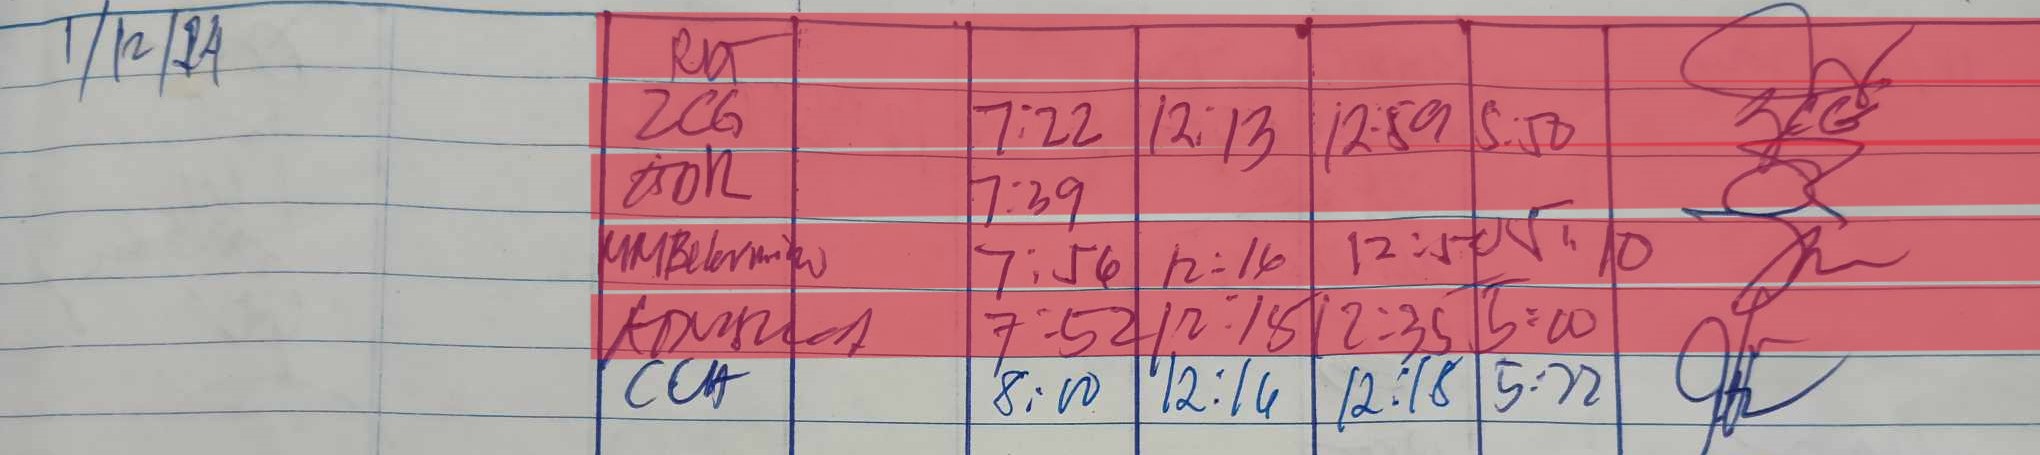 1/12/24
ZCG 7:22 12:13 12:59 5:50 ZCG
7:39
MMBelermino 7:56 12:16 12:50 5:10
7:52 12:15 12:35 5:00
CCA 8:00 12:16 12:18 5:22